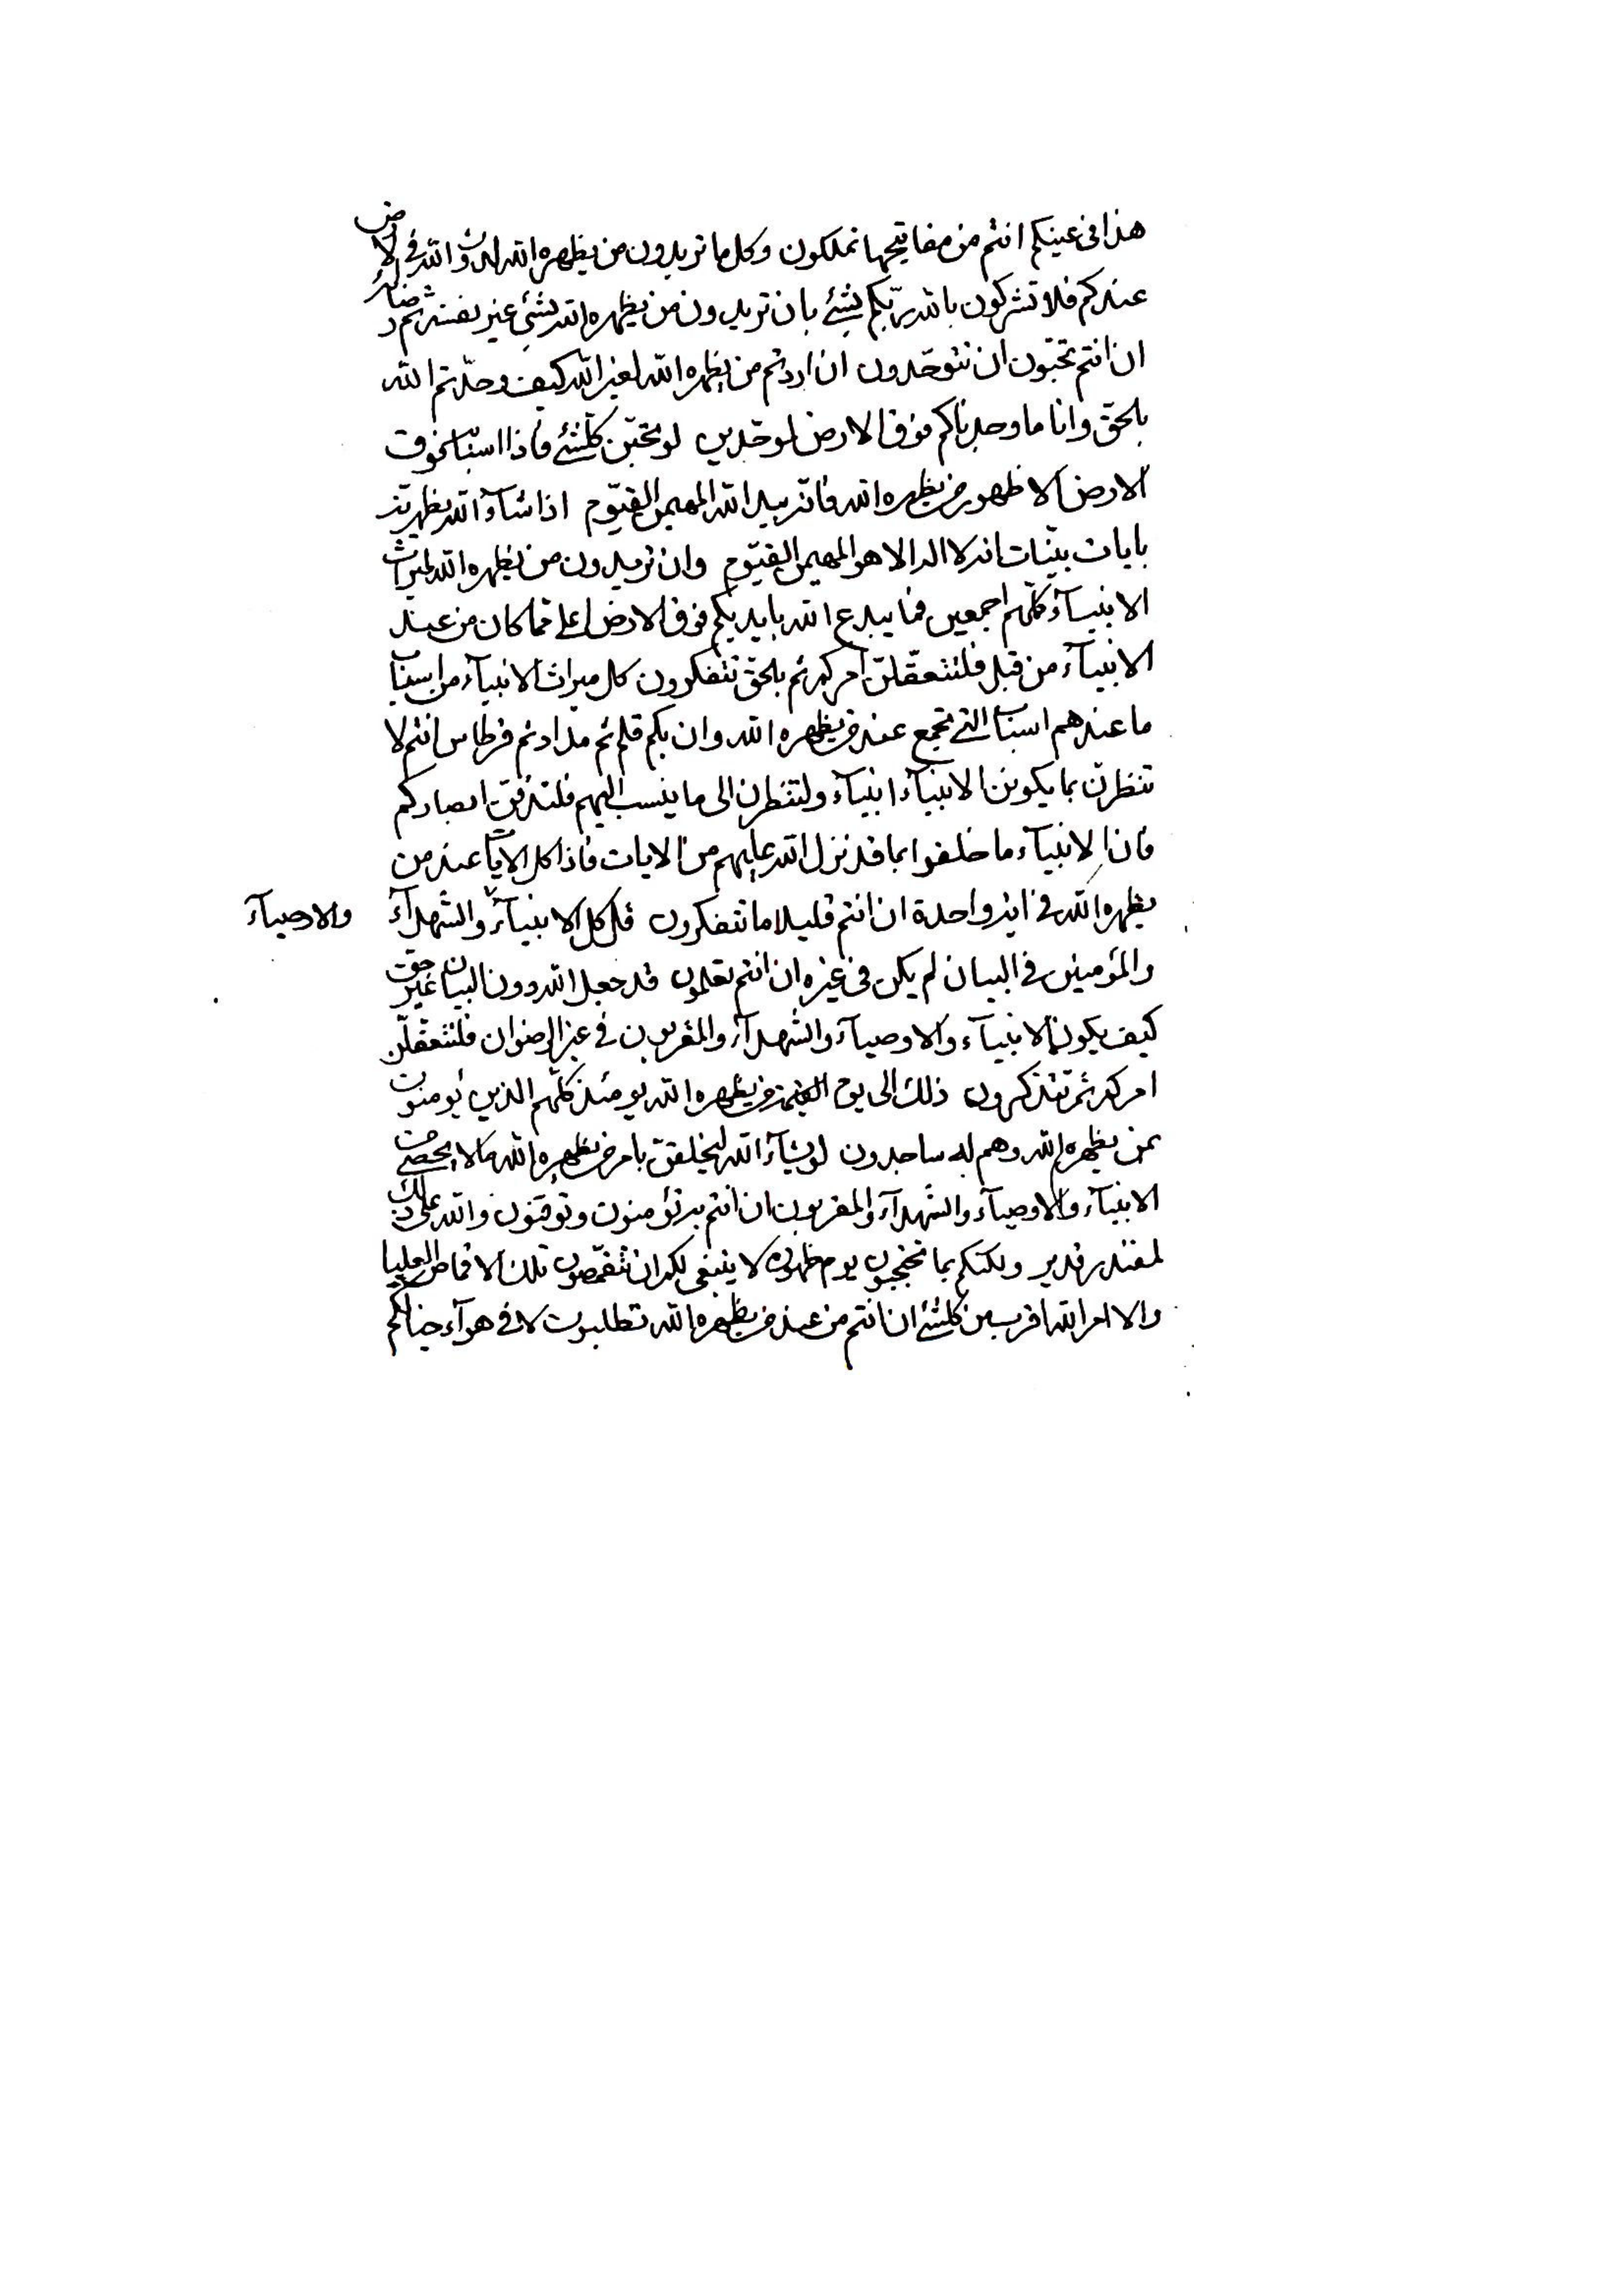 هذا فی عینکم انتم من مفاتیحها تملکون وکل ما تریدون من یظهره الله لدون الله فی الارض
عندکم فلا تشرکون بالله ربّکم بشیٔ بان تریدون من یظهره الله بشیٔ غیر نفسه ثم رضائه
ان انتم تحبّون ان تتوحّدون ان اردتم من یظهره الله لغیر الله کیف وحدّتم الله
بالحقّ وانا ما وجدناکم فوق الارض لموحّدین لو تحبّن کلشیٔ فاذا اسباب فوق
الارض الا ظهور من یظهره الله فاتریدالله المهیمن القیّوم اذا شآء الله یظهرنه
بایات بیّنات انه لا اله الا هو المهیمن القیّوم وان تریدون من یظهره الله لمیراث
الانبیآء کلّهم اجمعین فما یبدع الله بایدیکم فوق الارض اعلی مما کان من عند
الانبیآء من قبل فلتتعقّلنّ امرکم ثم بالحقّ تتفکرون کل میراث الانبیآء من اسباب
ما عندهم اسباب التی تجمع عند من یظهره الله وان بکم قلم ثم مداد ثم قرطاس انتم لا
تنظرنّ بما یکونن الانبیآء انبیآء ولتنظرن الی ما ینسب الیهم فلتدقّن ابصارکم
فان الانبیآء ما خلقوا بما قد نزل الله علیهم من الایات فاذا کل الایات عند من
یظهره الله فی ایة واحدة ان انتم قلیلا ما تتفکرون قل کل الانبیآء والشهدآء والاوصیآء
والمؤمنین فی البیان لم یکن فی غیره ان انتم تعلمون قد جعل الله دون البیان غیر حق
کیف یکونن الانبیآء والاوصیآء والشهدآء والمقربون فی غیر الرضوان فلتتعقّلن
امرکم ثم تتذکرون ذلک الی یوم القیمة من یظهره الله یومئذ کلّهم الذین یومنون
بمن یظهره الله وهم له ساجدون لو یشآء الله لیخلقنّ بامر من یظهره الله مالا یحصی من
الانبیآء والاوصیآء والشهدآء والمقربون ان انتم به تؤمنون وتوقنون والله علی ذلک
لمقتدر قدیر ولکنکم بما تحتجبون یوم ظهوره لا ینبغی لکم ان تتقمّصون تلک الاقماص العلیا
والا امر الله اقرب من کلشیٔ ان انتم من عند من یظهره الله تطلبون لا فی هوآء خیالکم